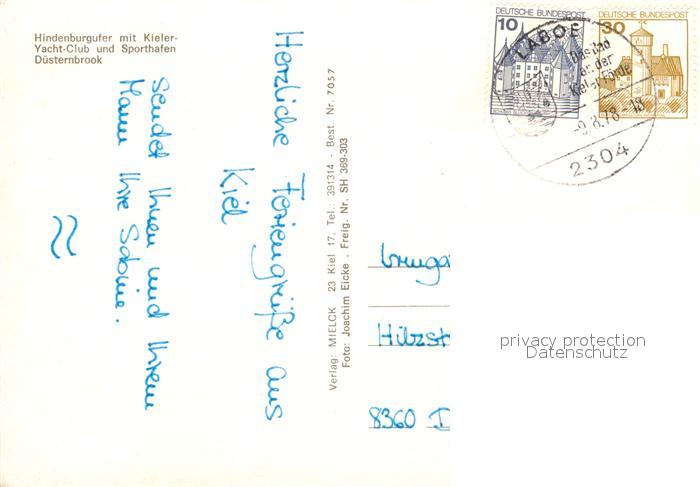 Hindenburgufer mit Kieler-
Yacht-Club und Sporthafen
Düsternbrook
Herzliche Feriengrüße aus
Kiel
sendet Ihnen und Ihrem
Mann Ihre Sabine.
Verlag: MIELCK 23 Kiel 17, Tel.: 391314 - Best. Nr. 7057
Foto: Joachim Eicke . Freig. Nr. SH 369-303
10
DEUTSCHE BUNDESPOST
30
DEUTSCHE BUNDESPOST
LABOE
Das Bad
an der
Kieler Förde
-9.8.78-18
2304
Hilzstr
8360 D
privacy protection
Datenschutz